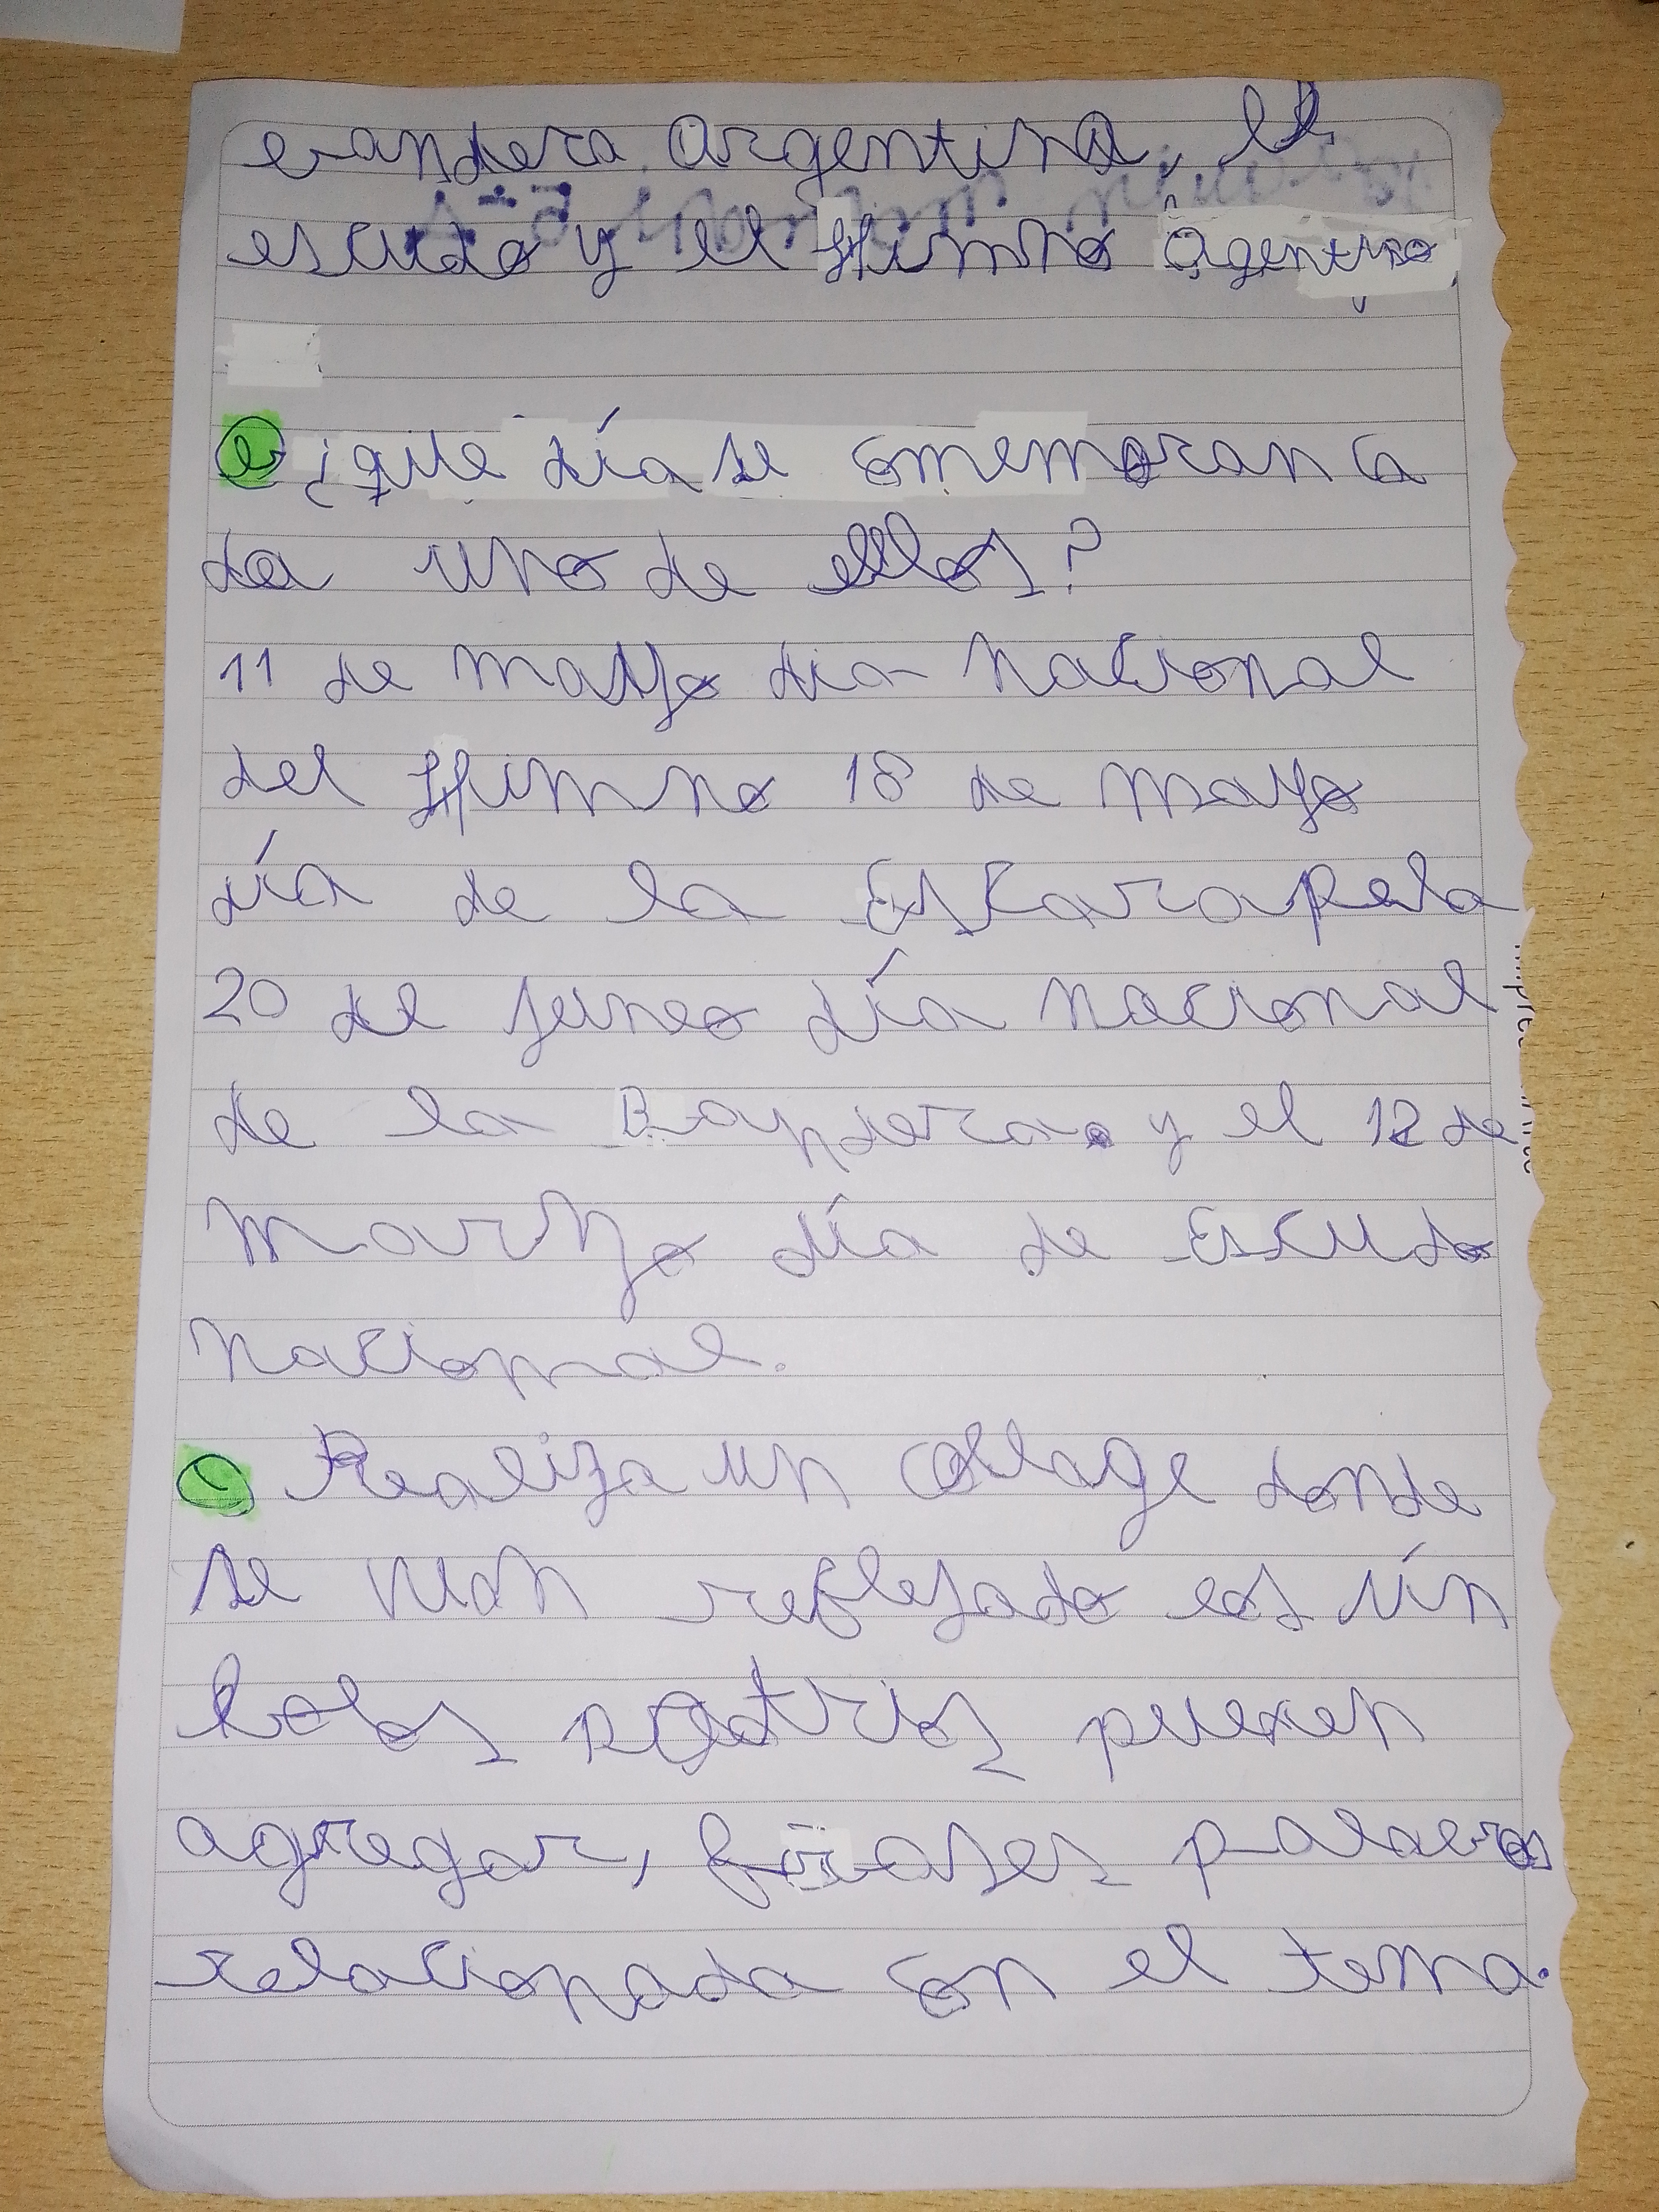 bandera Argentina, el
escudo y el Himno Agentino,
b ¿que día se comemoran ca
da uno de ellos?
11 de mayo dia nacional
del Himno 18 de mayo
día de la Escarapela
20 de juneo día nacional
de la Bandera. y el 12 de
marzo día de Escudo
nacional.
c Realiza un collage donde
se vean reflejado los sín
bolos patrios pueden
agregar, frases palabras
relacionada con el tema.